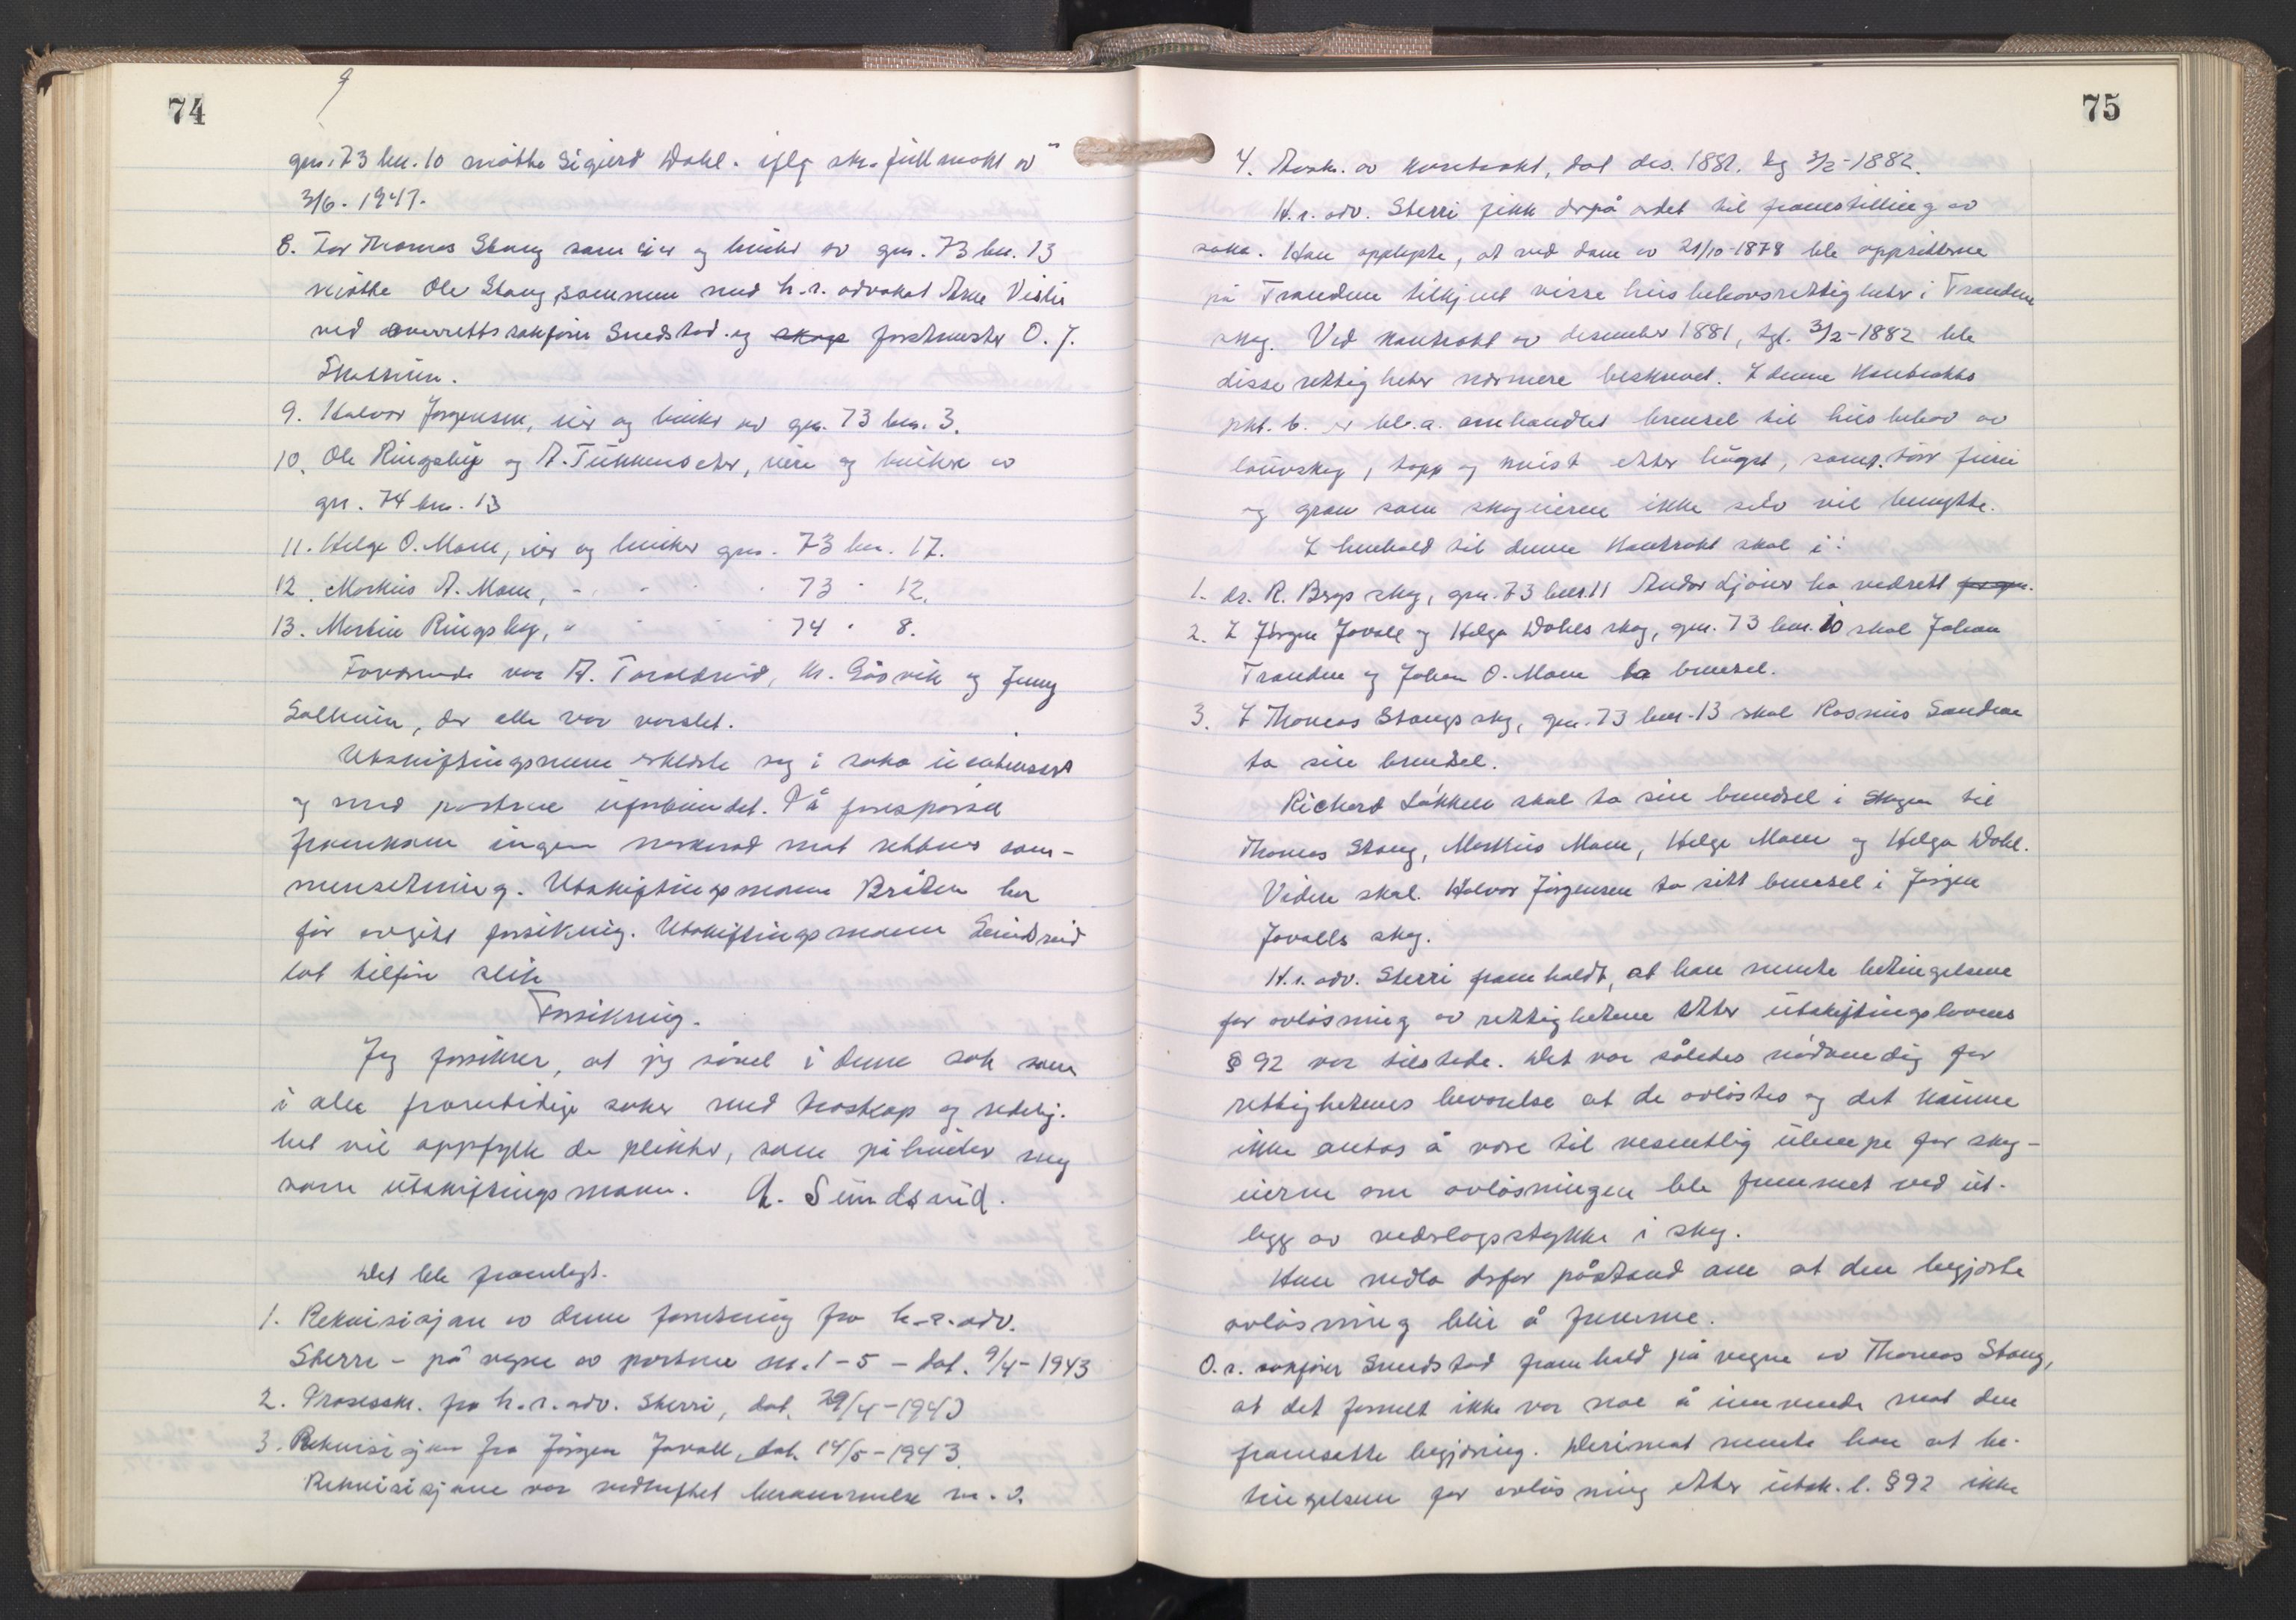 74
gnr. 73 bnr. 10 møtte Sigurd Dahl. iflg skr. fullmakt av
3/6. 1947.
8. For Thomas Stang som eier og bruker av gnr. 73 bnr. 13
møtte Ole Stang sammen med h.r. advokat Arne Vislie
ved overrettssakfører Sundstad og skogs forstmester O. J.
9. Halvor Jørgensen, eier og bruker av gnr. 73 bnr. 3.
10. Ole Ringsby og A. eiere og brukere av
gnr. 74 bnr. 13
11. Helge O. Moen, eier og bruker gnr. 73 bnr. 17.
12. Markus A. Moen, " " " " 73 " 12.
13. Martin Ringsby, " " " " 74 " 8.
Forøvrende var A. Taraldrud, Kr. Gåsvik og Jenny
Solheim, der alle var varslet.
Utskiftingsmenn erklærte seg i saka uinteressert
og med partene uforbundet. På forespørsel
framkom ingen merknad mot rettens sam-
mensetning. Utskiftingsmann Bråten har
før avgitt forsikring. Utskiftingsmann Sundsrud
lot tilføre slik
Forsikring.
Jeg forsikrer, at jeg såvel i denne sak som
i alle framtidige saker med troskap og redelig-
het vil oppfylle de plikter, som påhviler meg
som utskiftingsmann. A. Sundsrud.
Det ble framlagt.
1. Rekvisisjon av denne forretning fra h.r.adv.
Sterri - på vegne av partene nr. 1-5 - dat. 9/4-1943
2. Prosesskr. fra h.r.adv. Sterri, dat. 29/4-1943
3. Rekvisisjon fra Jörgen Jovall, dat. 14/5-1943.
Rekvisisjone var vedheftet berammelse m.v.
75
4. Avskr. av kontrakt, dat des. 1881. tg 3/2-1882.
H.r. adv. Sterri fikk derpå ordet til framstilling av
saka. Han opplyste, at ved dom av 21/10-1878 ble oppsitterne
på Tranden tilkjent visse husbehovsrettigheter i Tranden
skog. Ved kontrakt av desember 1881, tgl. 3/2-1882 ble
disse rettigheter nærmere beskrevet. I denne kontrakts
pkt. b. er bl.a. omhandlet brensel til husbehov av
lauvskog, topp og kvist etter hugst, samt tørr furu
og gran som skogeierne ikke selv vil benytte.
I henhold til denne kontrakt skal i:
1. dr. R. Bergs skog, gnr. 73 bnr. 11 Andor Ljøner ha vedrett for gnr.
2. I Jörgen Jovall og Helga Dahls skog, gnr. 73 bnr. 10 skal Johan
Tranden og Johan O. Moen ta brensel.
3. I Thomas Stangs skog, gnr. 73 bnr. 13 skal Rasmus Sandom
ta sin brensel.
Richard Løkken skal ta sin brensel i skogen til
Thomas Stang, Markus Moen, Helge Moen og Helga Dahl.
Videre skal Halvor Jörgensen ta sitt brensel i Jörgen
Jovalls skog.
H.r. adv. Sterri framholdt, at han mente betingelsene
for avløsning av rettighetene etter utskiftingslovens
§ 92 var tilstede. Det var således nødvendig for
rettighetenes bevarelse at de avløstes og det kunne
ikke antas å være til vesentlig ulempe for skog-
eierne om avløsningen ble fremmet ved ut-
legg av vederlagsstykke i skog.
Han nedla derfor påstand om at den begjærte
avløsning blir å fremme.
O.r. sakfører Sundstad framhold på vegne av Thomas Stang,
at det formelt ikke var noe å innvende mot den
framsatte begjæring. Derimot mente han at be-
tingelsene for avløsning etter utsk. l. § 92 ikke